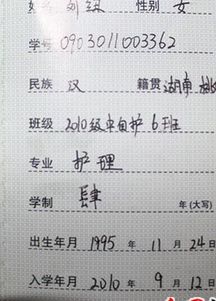 姓名 刘妞 性别 女
学号 0903011003362
民族 汉 籍贯 湖南
班级 2010级中自护6班
专业 护理
学制 肆 年(大写)
出生年月 1995 年 11 月 24日
入学年月 2010 年 9 月 12日